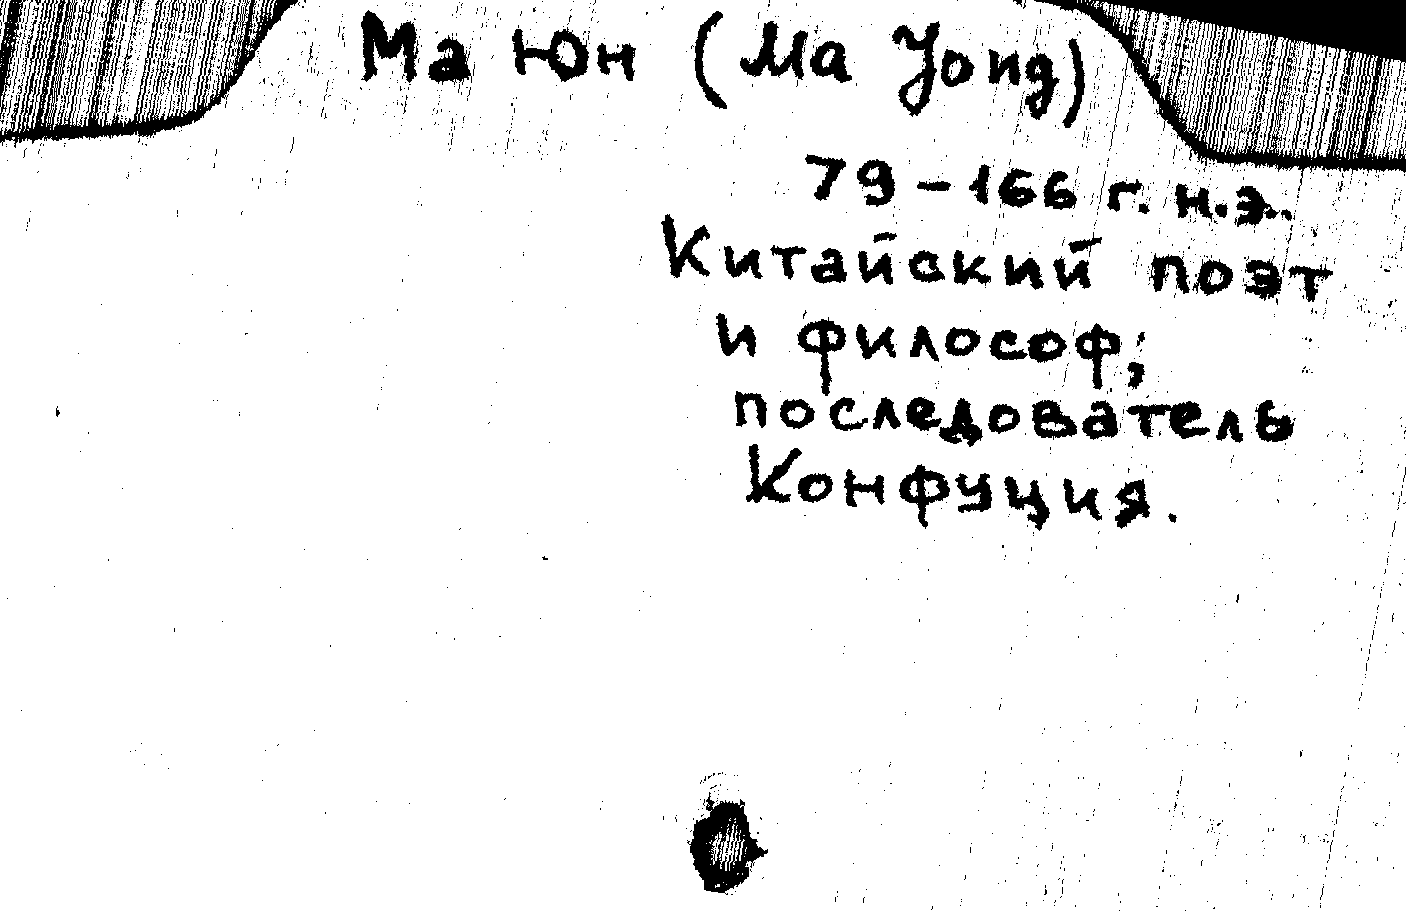 Ма Юн (Ma Yong)
79-166 г. н.э..
Китайский поэт
и философ;
последователь
Конфуция.